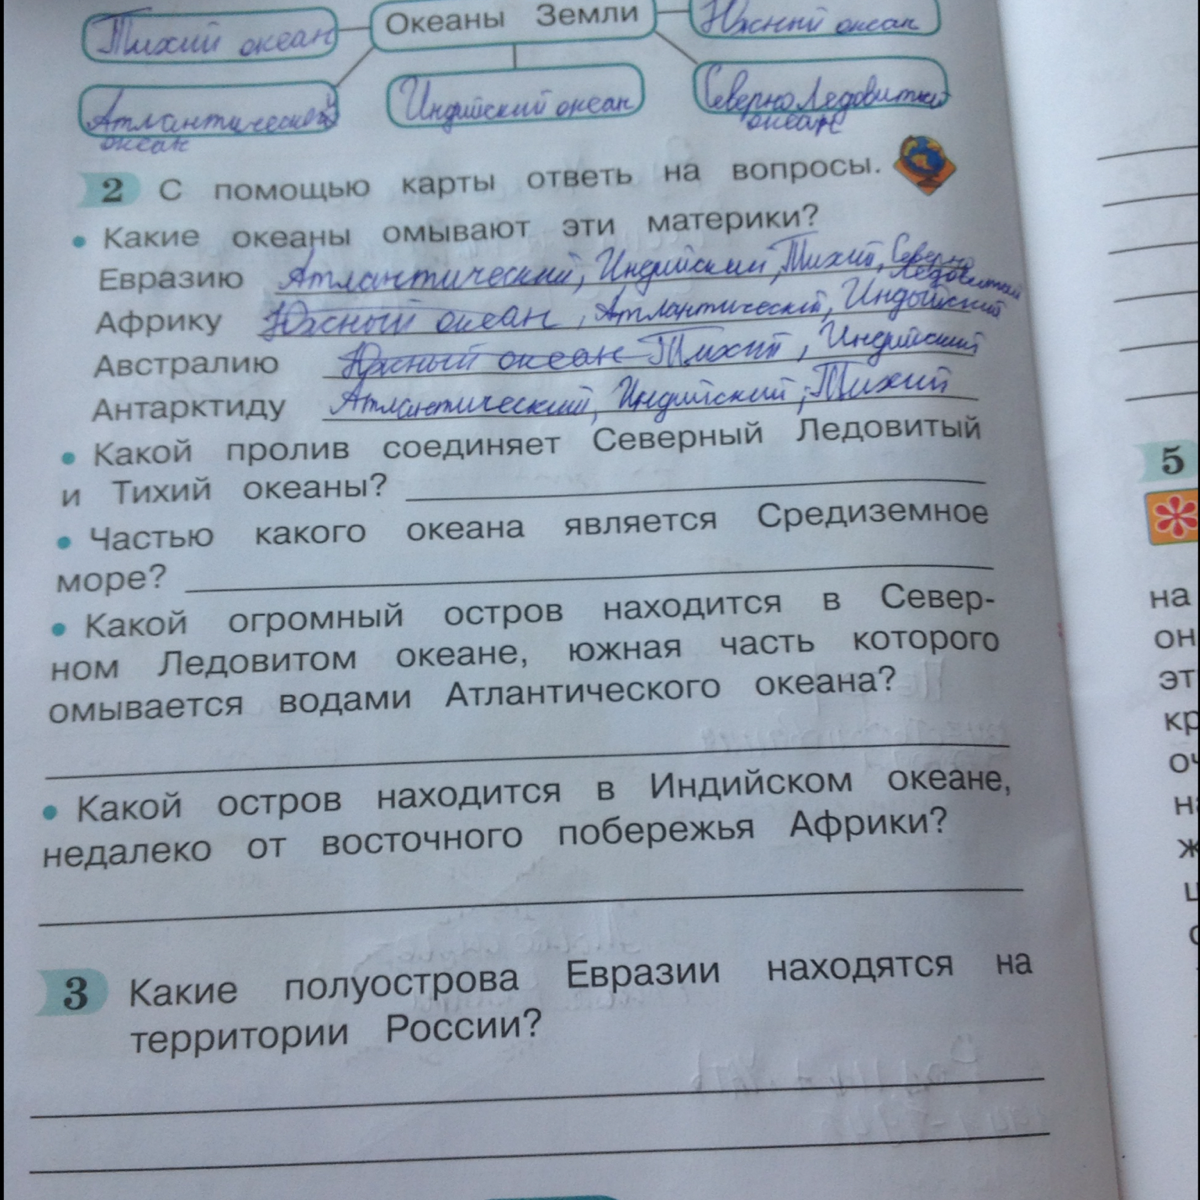 Тихий океан Океаны Земли Южный океан
Атлантический Индийский океан Северно Ледовитый
океан океан
2 С помощью карты ответь на вопросы.
• Какие океаны омывают эти материки?
Евразию Атлантический, Индийский, Тихий, Северно
Ледовитый
Африку Южный океан, Атлантический, Индийский
Австралию Южный океан Тихий, Индийский
Антарктиду Атлантический, Индийский, Тихий
• Какой пролив соединяет Северный Ледовитый
и Тихий океаны?
• Частью какого океана является Средиземное
море?
• Какой огромный остров находится в Север-
ном Ледовитом океане, южная часть которого
омывается водами Атлантического океана?
• Какой остров находится в Индийском океане,
недалеко от восточного побережья Африки?
3 Какие полуострова Евразии находятся на
территории России?
5
на
он
эт
кр
оч